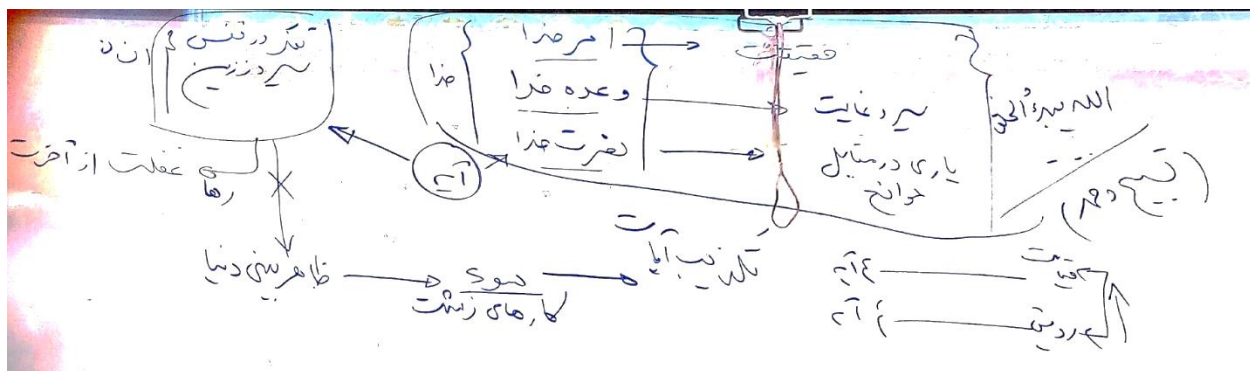 الله یبدء الخلق
(تسبیح و حمد)
حقیقت
سیر و غایت
یاری در مقابل
موانع
امر خدا
وعده خدا
نصرت خدا
خدا
آیه
انسان
تفکر در نفس
سیر در زمین
رها
غفلت از آخرت
ظاهر بینی دنیا
سوء
کارهای زشت
تکذیب آیات
قیامت
آیه
آیه